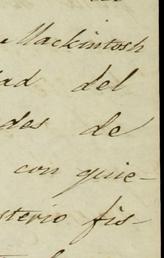 Mackintosh
dad del
des de
con quie-
sterio fis-